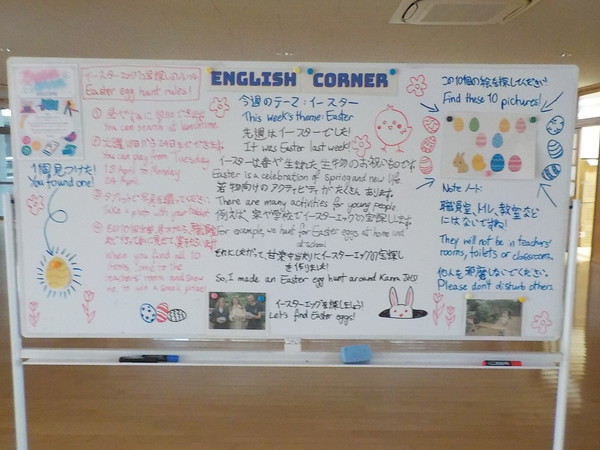 ENGLISH CORNER
Easter egg hunt rules!
①
You can search at lunchtime.
②
You can play from Tuesday
18 April to Monday
24 April
③
Take a photo with your
④
When you find all 10
items, come to the
teachers' room and show
me to win a small prize!
1個見つけた!
You found one!
今週のテーマ:イースター
This week's theme: Easter
先週はイースターでした!
It was Easter last week!
イースターは春や生まれた生き物のお祝いものです。
Easter is a celebration of spring and new life.
若物向けのアクティビティがたくさんあります。
There are many activities for young people
例えば、家や学校でイースターエッグの宝探しします。
For example, we hunt for Easter eggs at home and
at school
So, I made an Easter egg hunt around Kanra JHS!
イースターエッグを探しましょう!
Let's find Easter eggs!
この10個の絵を探してください!
Find these 10 pichures!
Note ノート:
職員室、トイレ、教室など
にはないですね!
They will not be in teachers'
rooms, toilets or classrooms.
他人を邪魔しないでください。
Please don't disturb others.